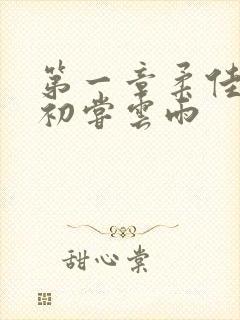 第一章柔佳
初尝雲雨
甜心棠